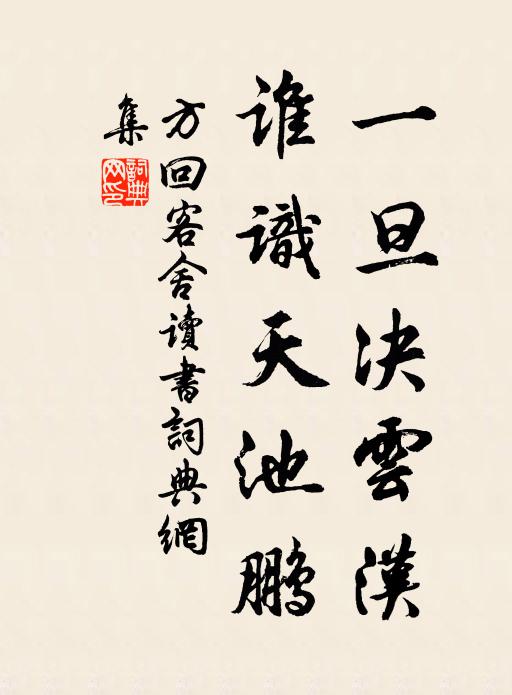 一旦决雲漢
誰識天池鵬
方回客舍讀書詞典網
集
詞典網印